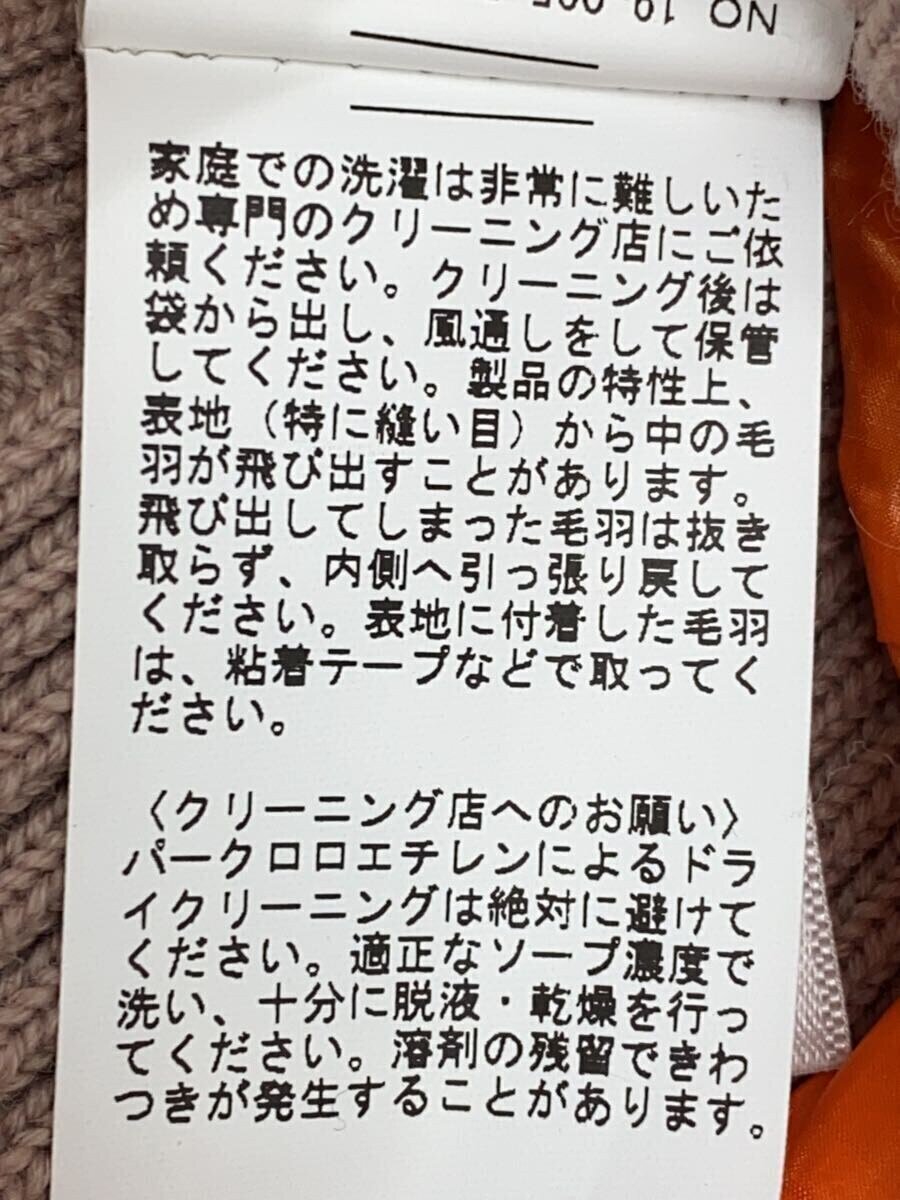 NO 19 005
家庭での洗濯は非常に難しいた
め専門のクリーニング店にご依
頼ください。クリーニング後は
袋から出し、風通しをして保管
してください。製品の特性上、
表地（特に縫い目）から中の毛
羽が飛び出すことがあります。
飛び出してしまった毛羽は抜き
取らず、内側へ引っ張り戻して
ください。表地に付着した毛羽
は、粘着テープなどで取ってく
ださい。
〈クリーニング店へのお願い〉
パークロロエチレンによるドラ
イクリーニングは絶対に避けて
ください。適正なソープ濃度で
洗い、十分に脱液・乾燥を行っ
てください。溶剤の残留できわ
つきが発生することがあります。